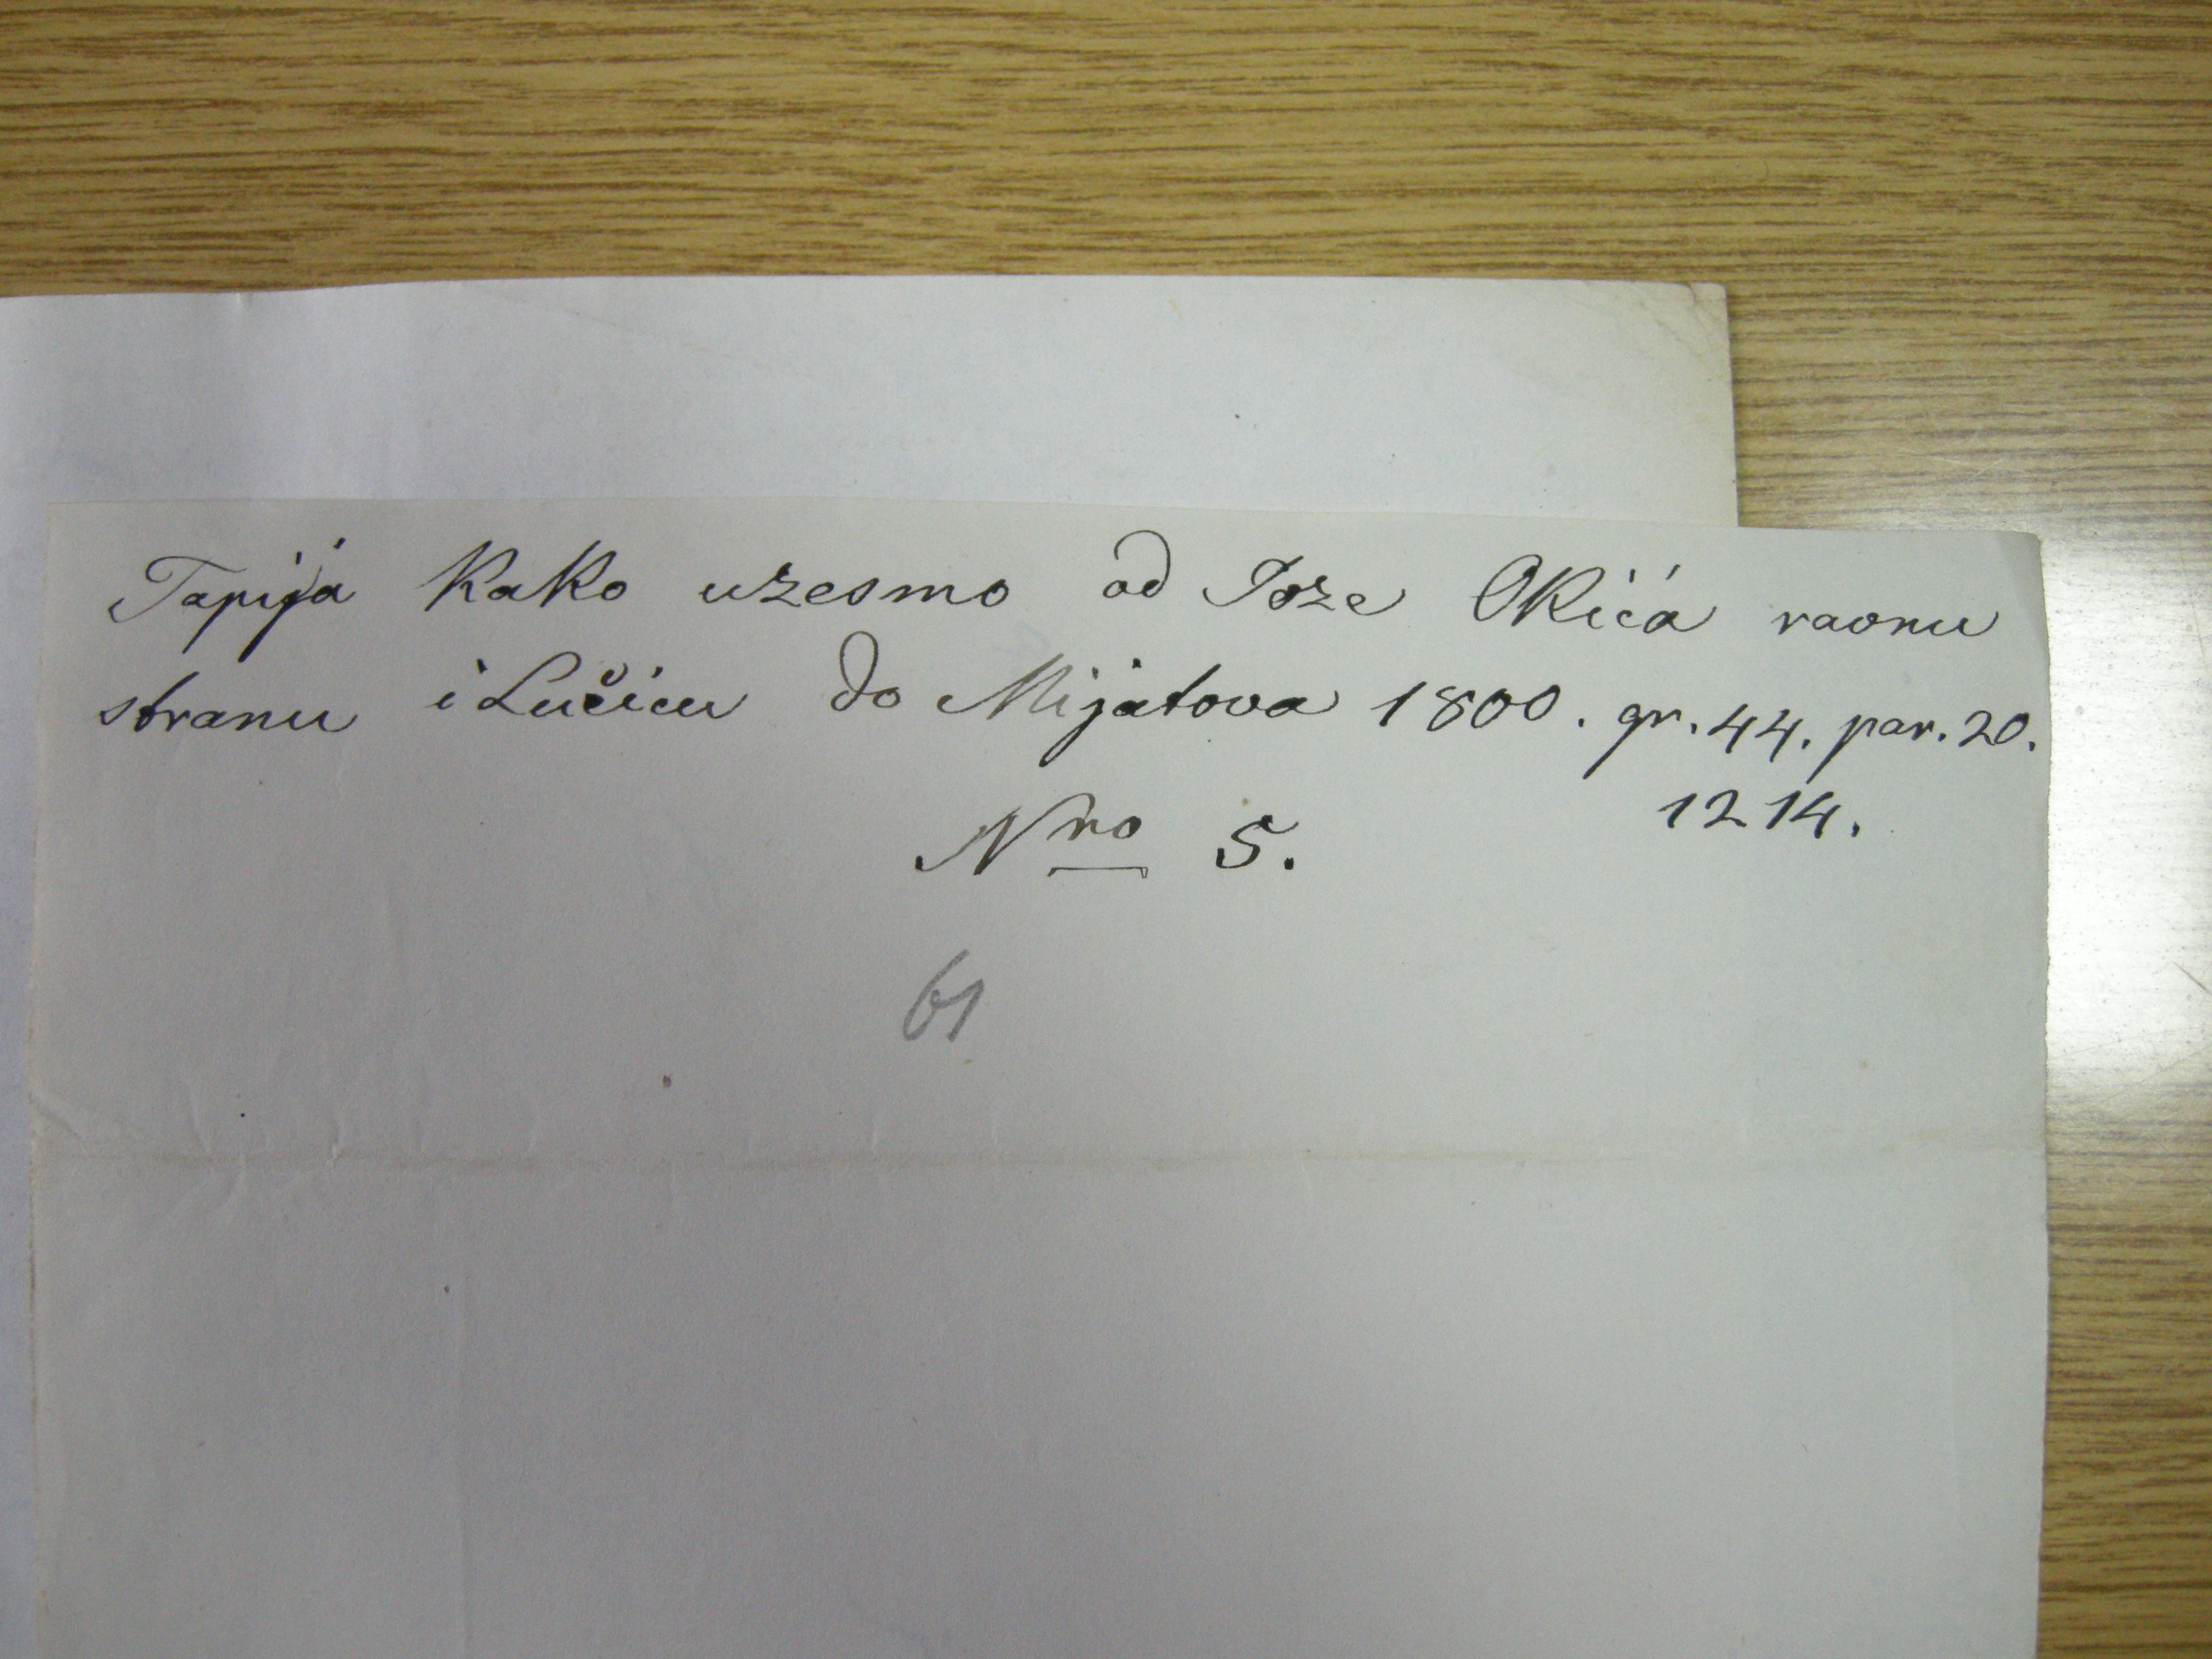 Tapija kako uzesmo od Joze Okića ravnu
stranu i Lučicu do Mijatova 1800. gr. 44. par. 20.
1214.
Nro 5.
61